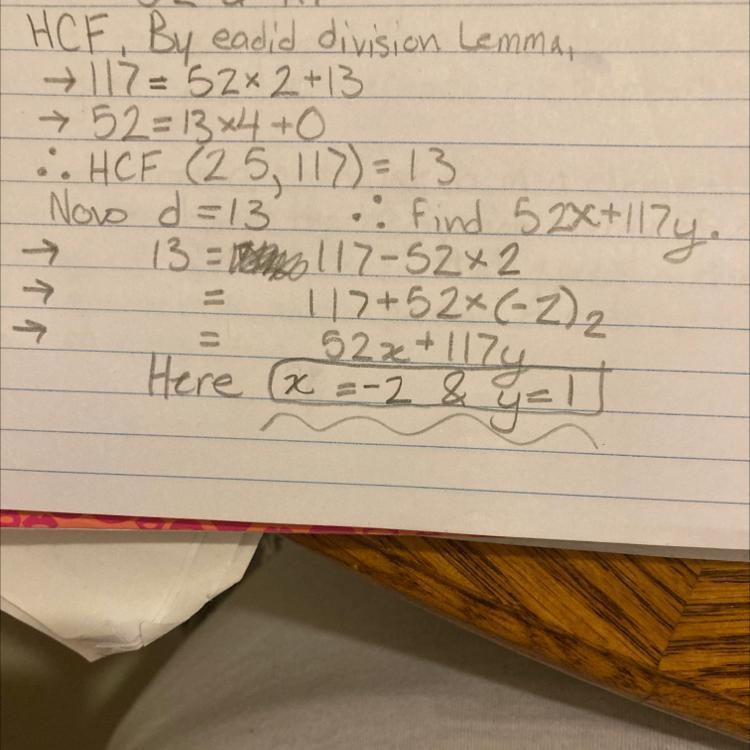 HCF. By eadid division Lemma,
→ 117 = 52 × 2 + 13
→ 52 = 13 × 4 + 0
∴ HCF (25, 117) = 13
Novo d = 13 ∴ Find 52x + 117y.
→ 13 = 117 - 52 × 2
→ = 117 + 52 × (-2)2
→ = 52x + 117y
Here x = -2 & y = 1